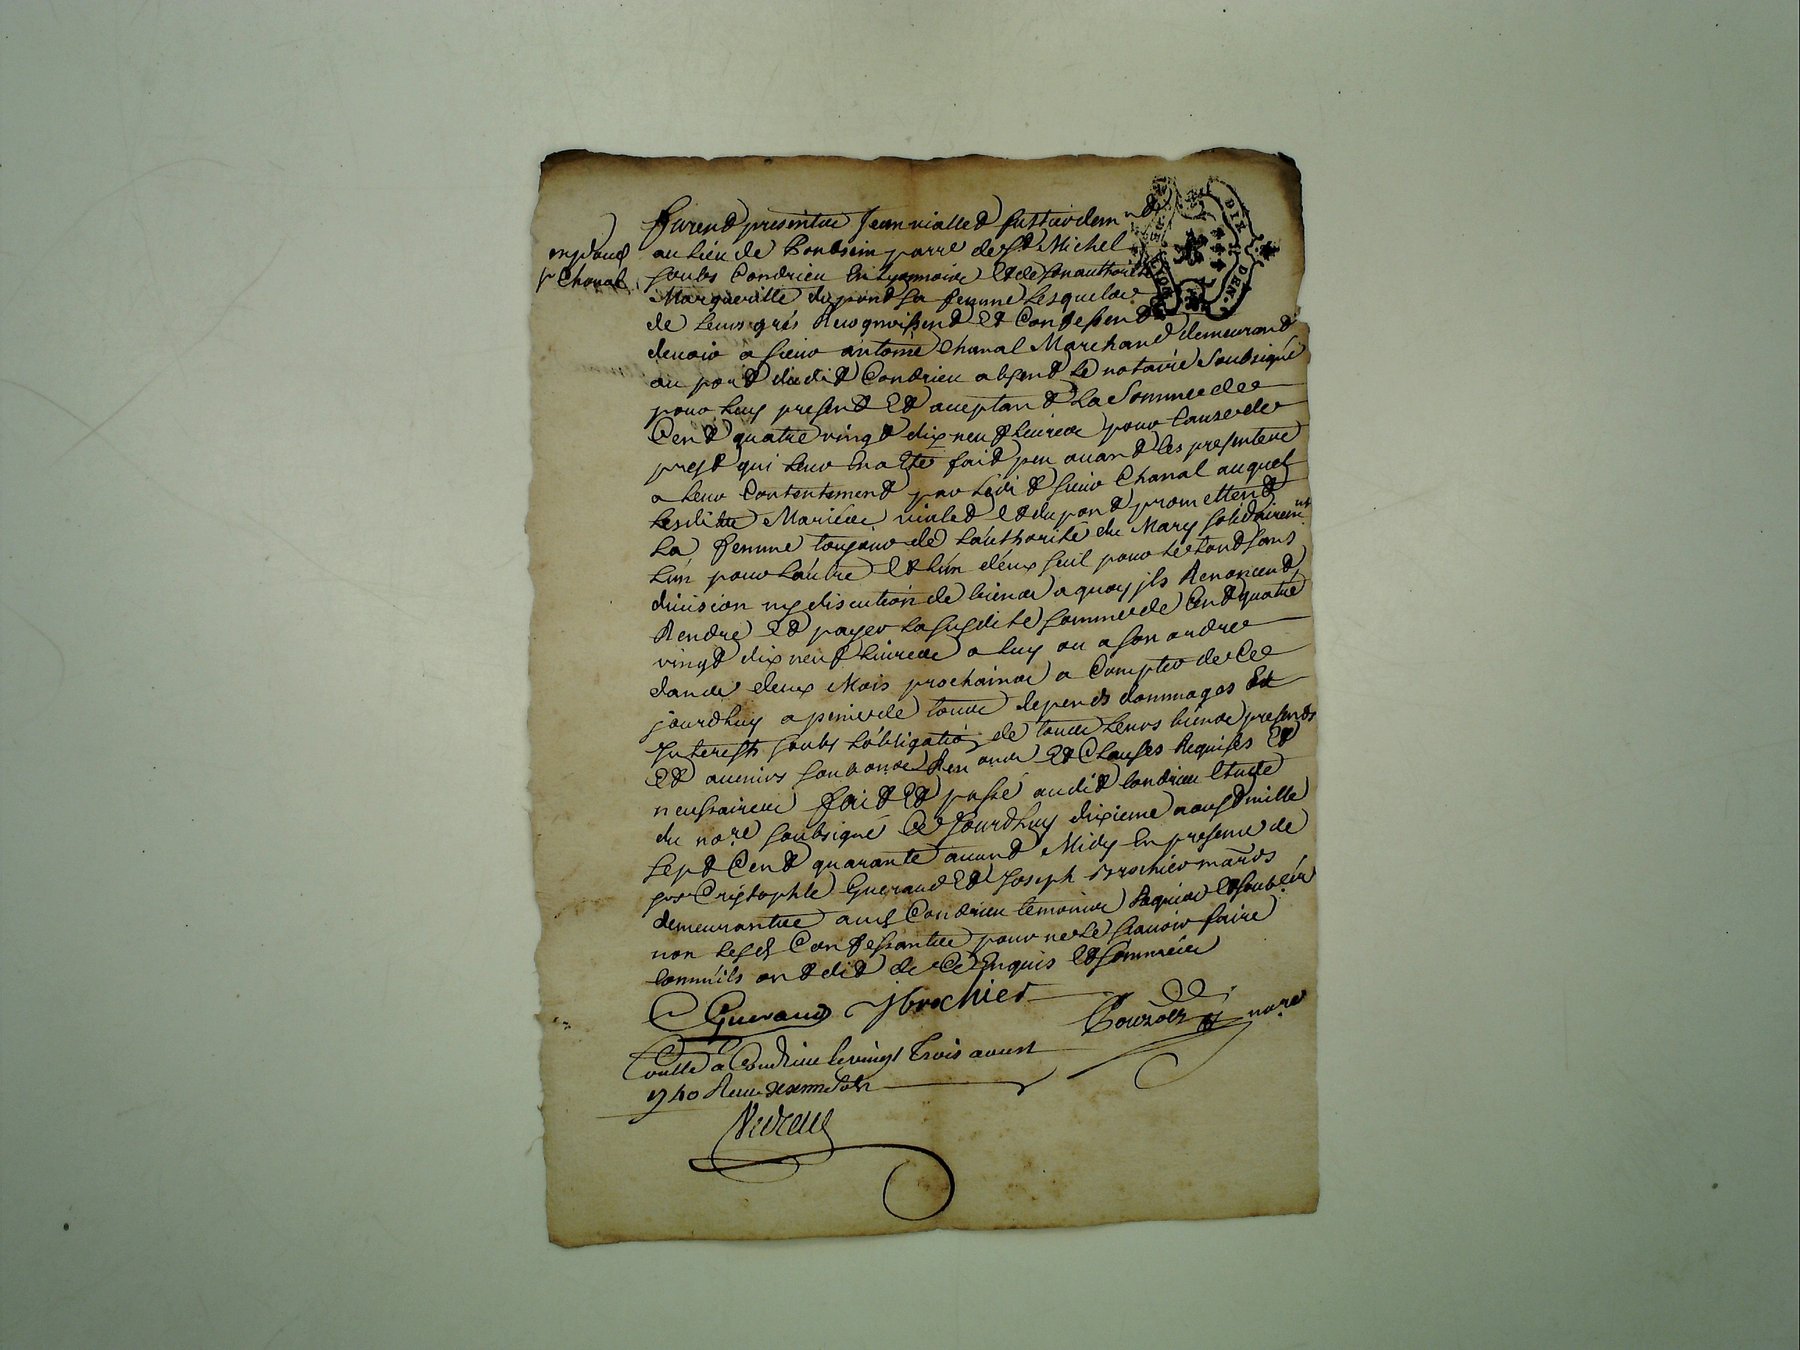 Furent presentes Jean viallet fustier dem.nt
au lieu de Bontsein parre de St Michel
soubs Condrieu En Lyonnois Et de son authorité
Marguerite dupont sa femme Lesquels
de Leurs grés Recognoissent Et Confessent
devoir a sieur antoine Chanal Marchand demeurant
au port dudit Condrieu absent Le notaire Soubsigné
pour Luy present Et aceptant La Somme de
Cent quatre vingt dix neuf Livres pour Cause de
prest qui Leur En a Esté fait peu avant Les presentes
a Leur Contentement par Ledit sieur Chanal auquel
Lesdits Mariés vialet Et dupont promettent
La femme toujour de L'authorité du Mary solidairemt
L'un pour L'autre Et L'un d'eux seul pour Le tout sans
division ny discution de biens a quoy ils Renoncent
Rendre Et payer La susdite somme de Cent quatre
vingt dix neuf Livres a Luy ou a son ordre
dans deux Mois prochains a Compter de Ce
jourdhuy a peine de tous depents dommages Et
Interests soubs L'obligation de tous Leurs biens presents
Et avenirs Et Clauses Requises Et
necessaires fait Et passé audit Condrieu Etude
du nore soubsigné Ce Jourdhuy dixieme aoust mille
sept Cent quarante avant Midy En presence de
srs Cristophle Gueraud Et Joseph Brochier
demeurants aud Condrieu temoins Requis Et soubsés
non Lesd Confessants pour ne Le sçavoir faire
Comm'ils ont dit de Ce Enquis Et sommés
C Gueraud J brochier
nore
Conllé a Condrieu le vingt Trois aoust
1740 Receu
mp d aud
sr Chanal
DIX DEN.